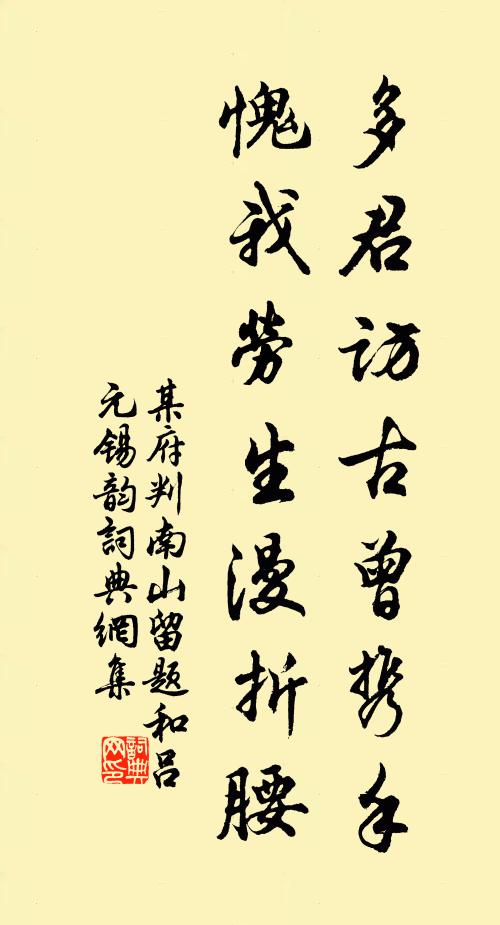 多君访古曾携手
愧我劳生漫折腰
某府判南山留题和吕
元锡韵词典网集
詞典网印